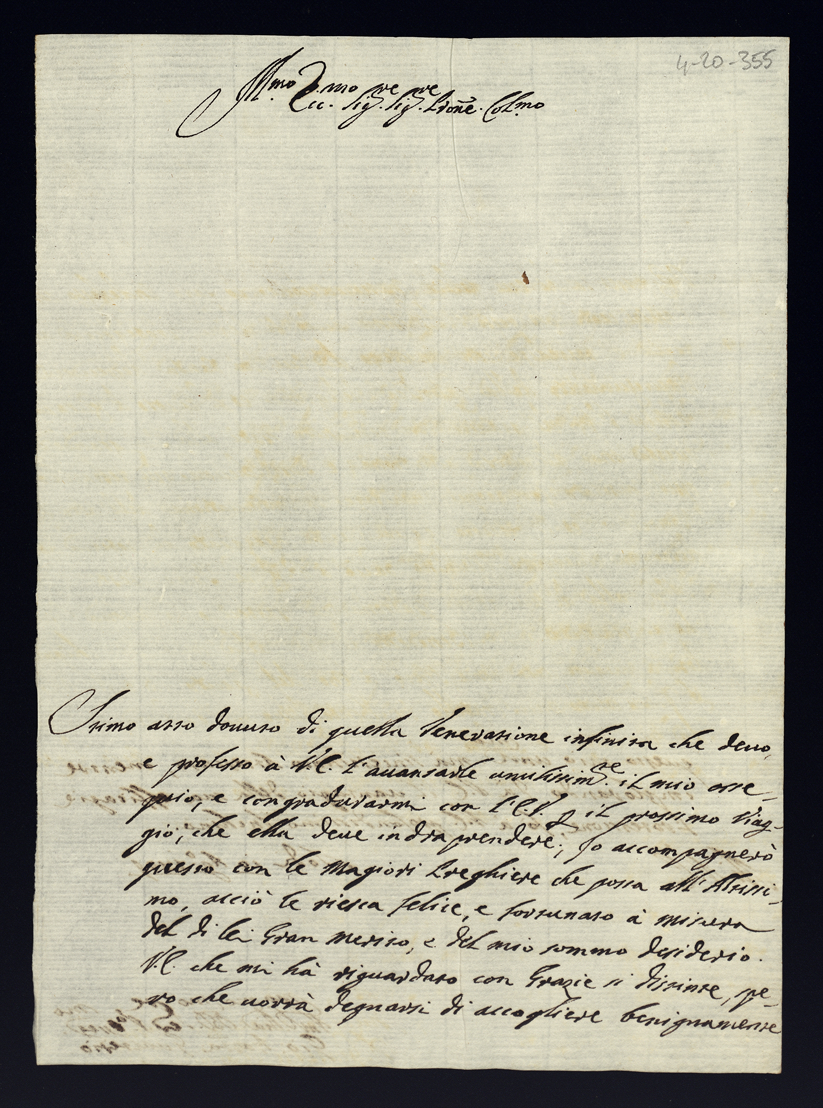 4-20-355
Ill.mo Ecc.mo Sig.re Sig.re Prone. Col.mo
Stimo atto douuto di quella Venerazione infinita che deuo,
e professo à V.E. l'auanzarle umilissim.te il mio osse-
quio, e congradularmi con l'E.V. il prossimo Viag-
gio, che ella deue indraprendere; Io accompagnerò
questo con le Magiori Preghiere che possa all'Altissi-
mo, acciò le riesca felice, e fortunato à misura
del di lei Gran Merito, e del mio sommo desiderio.
V.E. che mi hà riguardato con Grazie si distinte, spe-
ro che uorrà degnarsi di accogliere benignamente